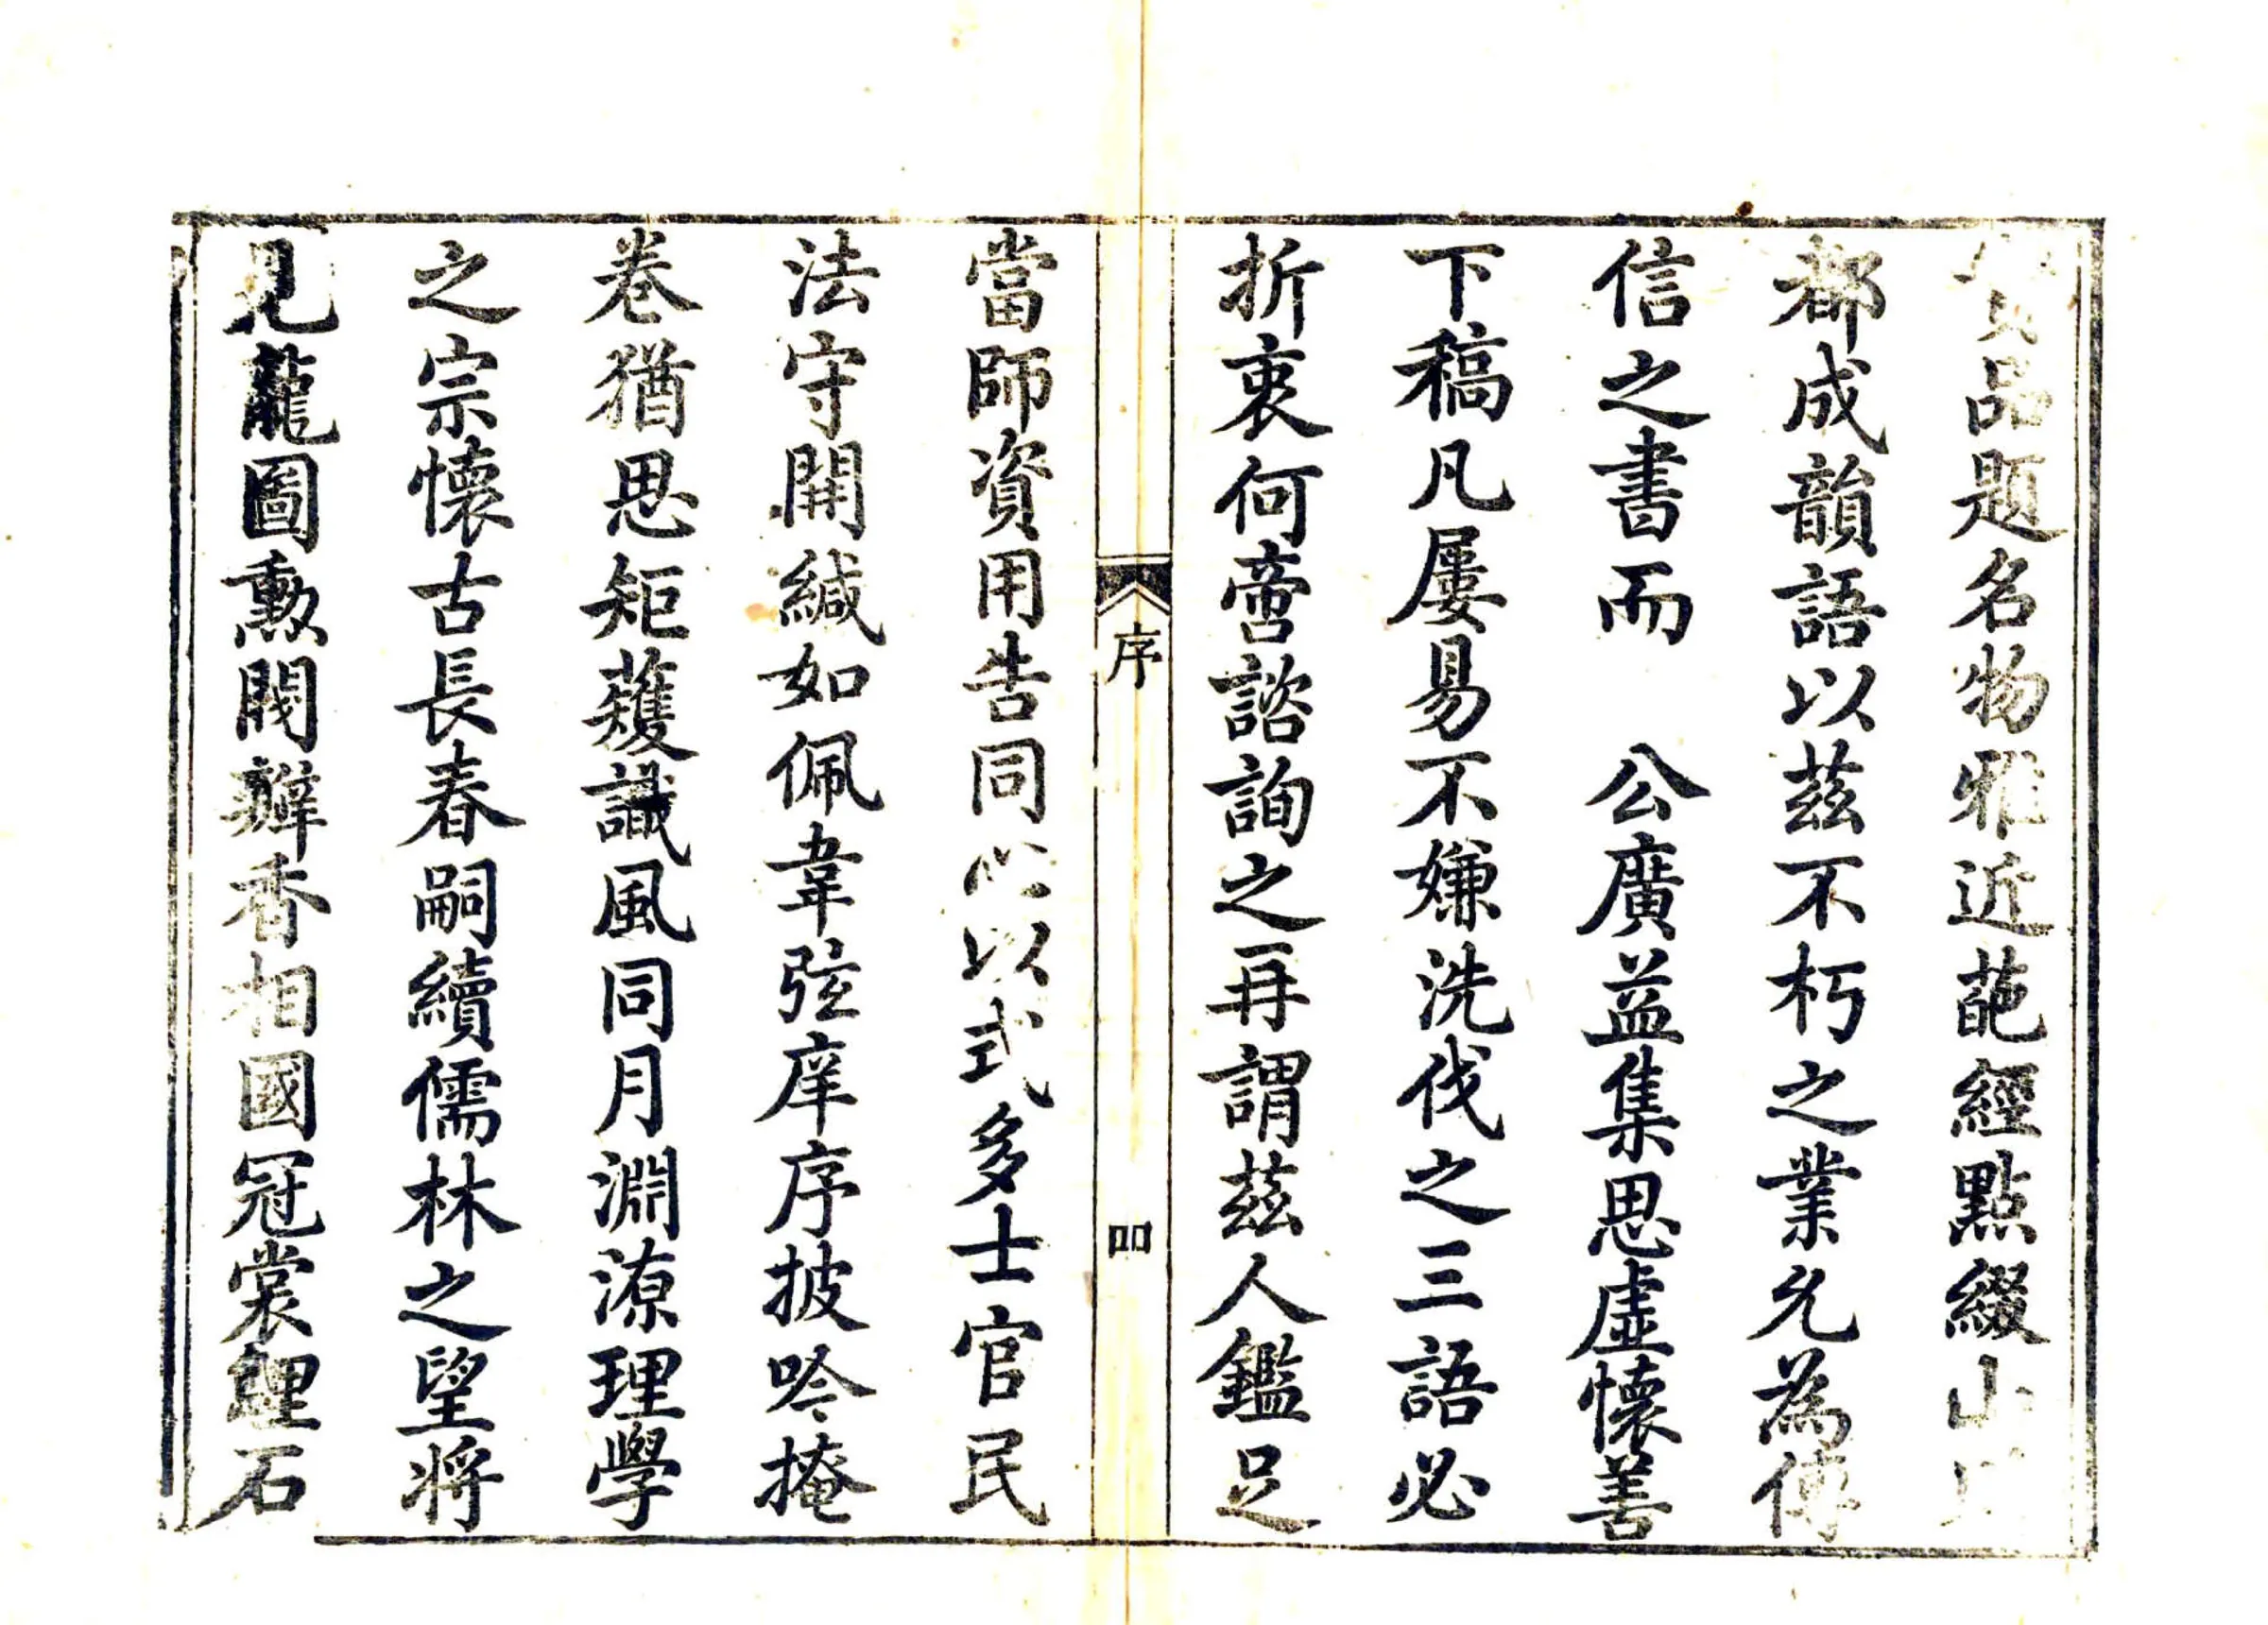 品題名物雅近葩經點綴山
都成韻語以茲不朽之業允為傳
信之書而　公廣益集思虛懷善
下稿凡屢易不嫌洗伐之三語必
折衷何啻諮詢之再謂茲人鑑足
序
四
當師資用告同心以式多士官民
法守開緘如佩韋弦庠序披吟掩
卷猶思矩蒦識風同月淵源理學
之宗懷古長春嗣續儒林之望將
見龍圖勲閥辦香相國冠裳鯉石